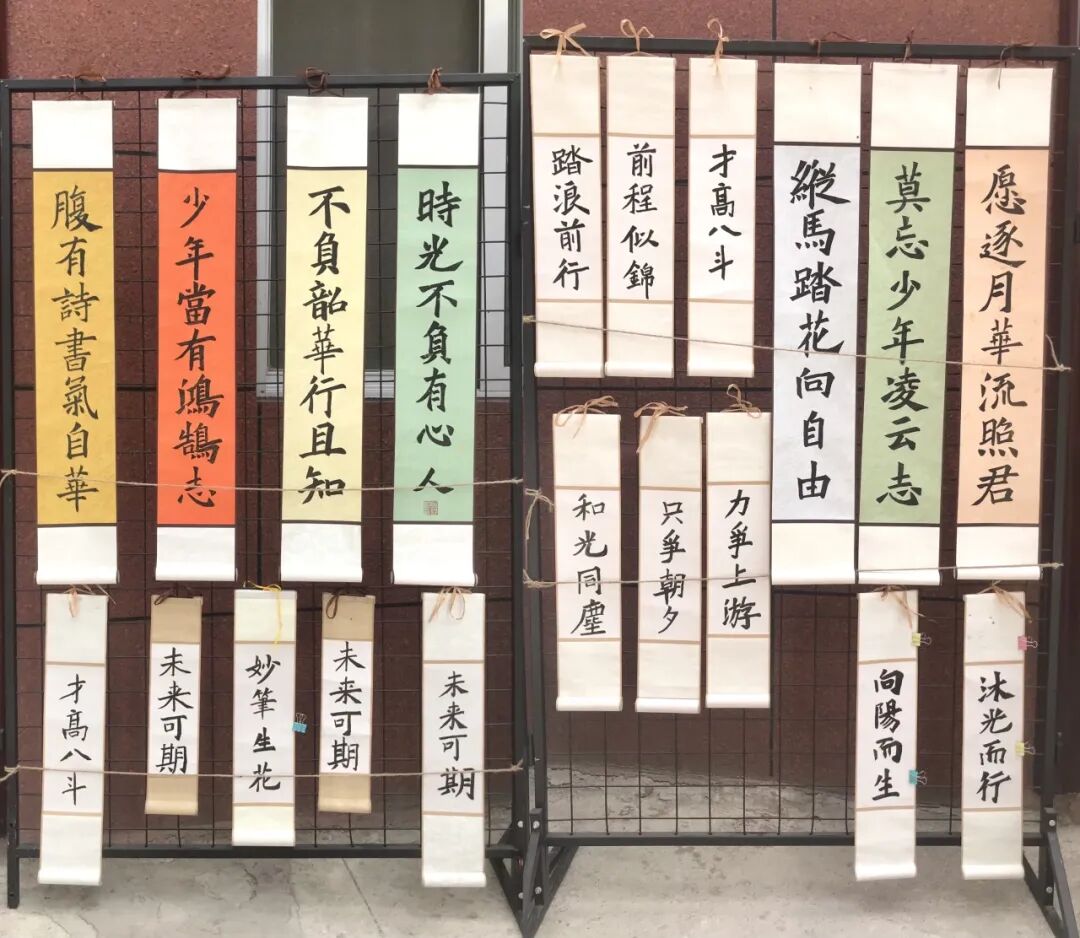 腹有詩書氣自華
少年當有鴻鵠志
不負韶華行且知
時光不負有心人
才高八斗
未来可期
妙筆生花
未来可期
未来可期
踏浪前行
前程似錦
才高八斗
縱馬踏花向自由
莫忘少年凌云志
愿逐月華流照君
和光同塵
只爭朝夕
力爭上游
向陽而生
沐光而行